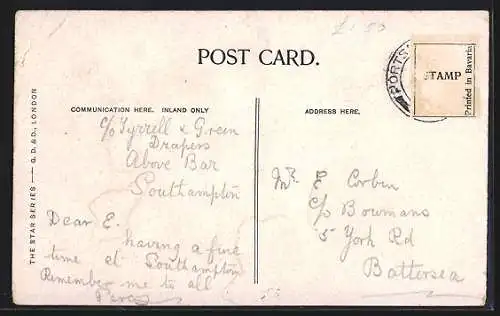 £1.50
POST CARD.
PORTS
STAMP
Printed in Bavaria
THE STAR SERIES — G. D. & D., LONDON
COMMUNICATION HERE. INLAND ONLY
c/o Tyrrell & Green
Drapers
Above Bar
Southampton
Dear E.
having a fine
time at Southampton
Remember me to all
Percy
ADDRESS HERE.
Mr. E Corben
c/o Bowmans
5 York Rd
Battersea